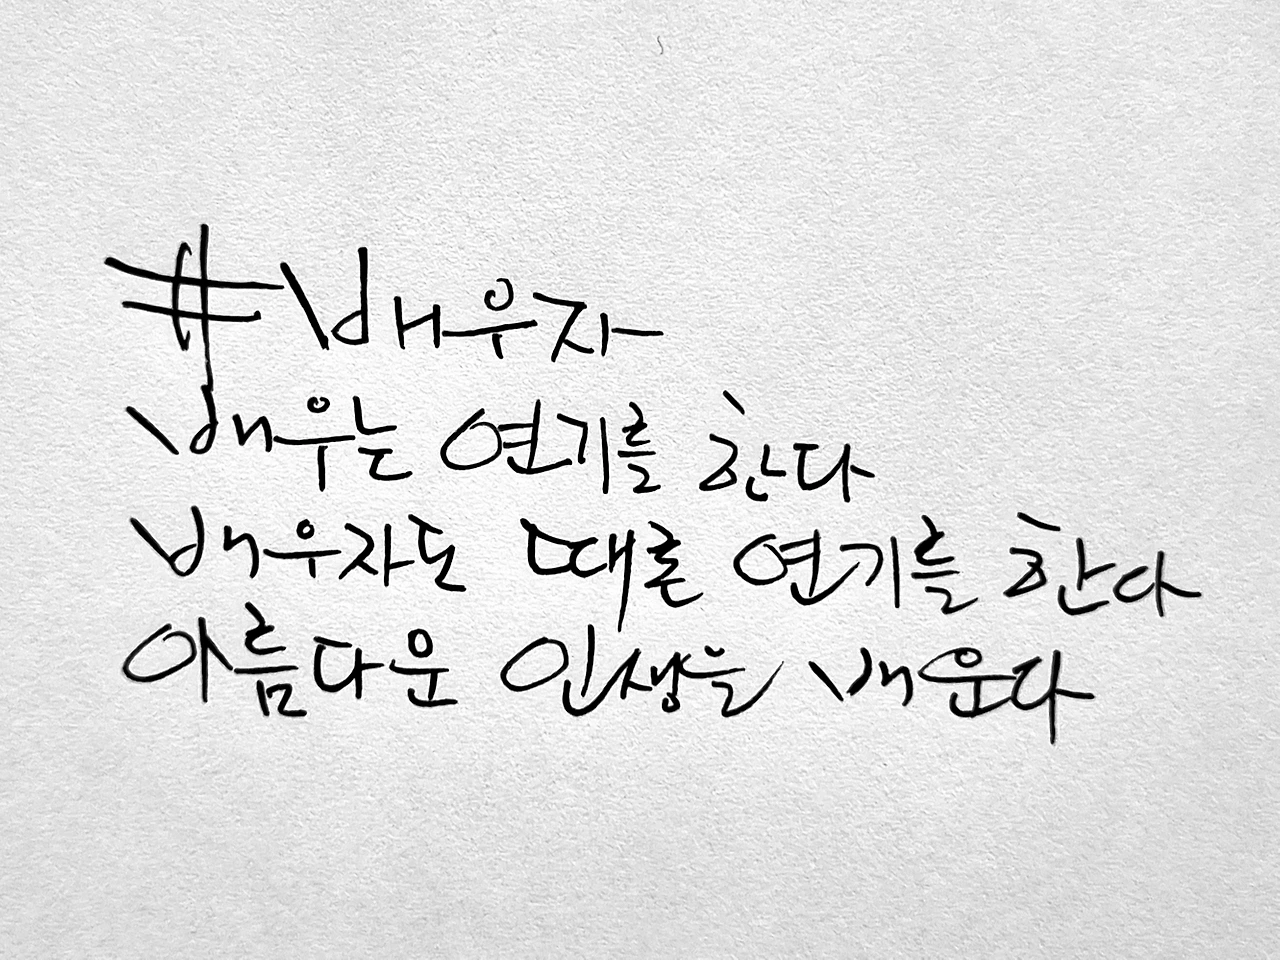 #배우자
배우는 연기를 한다
배우자도 때론 연기를 한다
아름다운 인생을 배운다